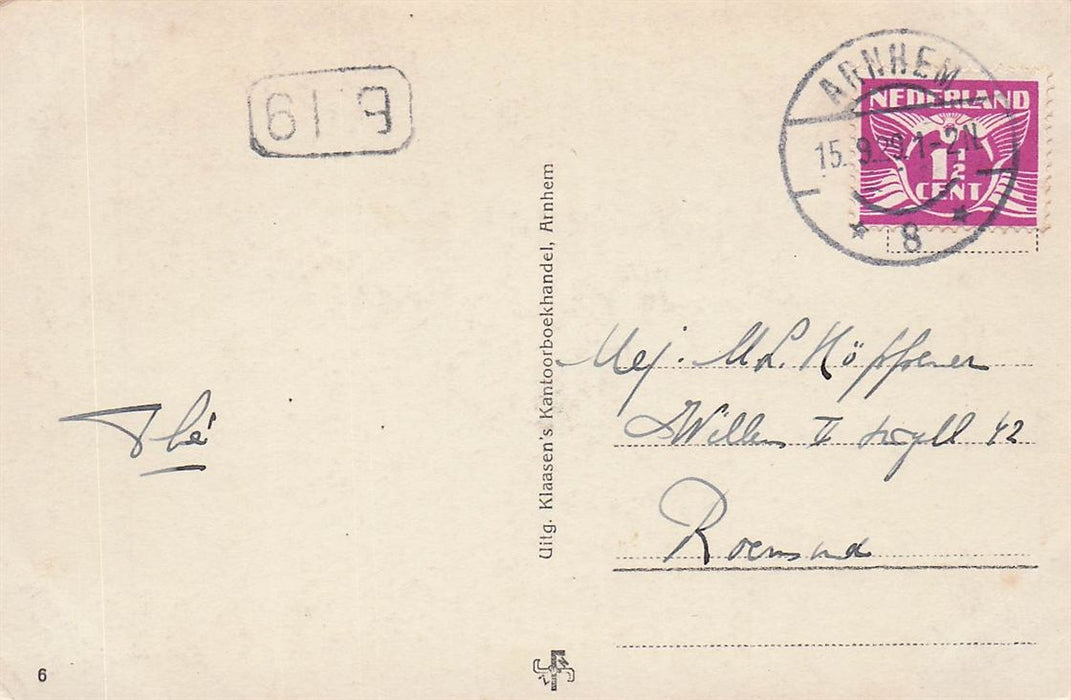 ARNHEM
15.9.29.1-2N
8
NEDERLAND
1½
CENT
Uitg. Klaasen's Kantoorboekhandel, Arnhem
Mej. M.L. Höppener
Willem II 42
Roermond
Thé
6